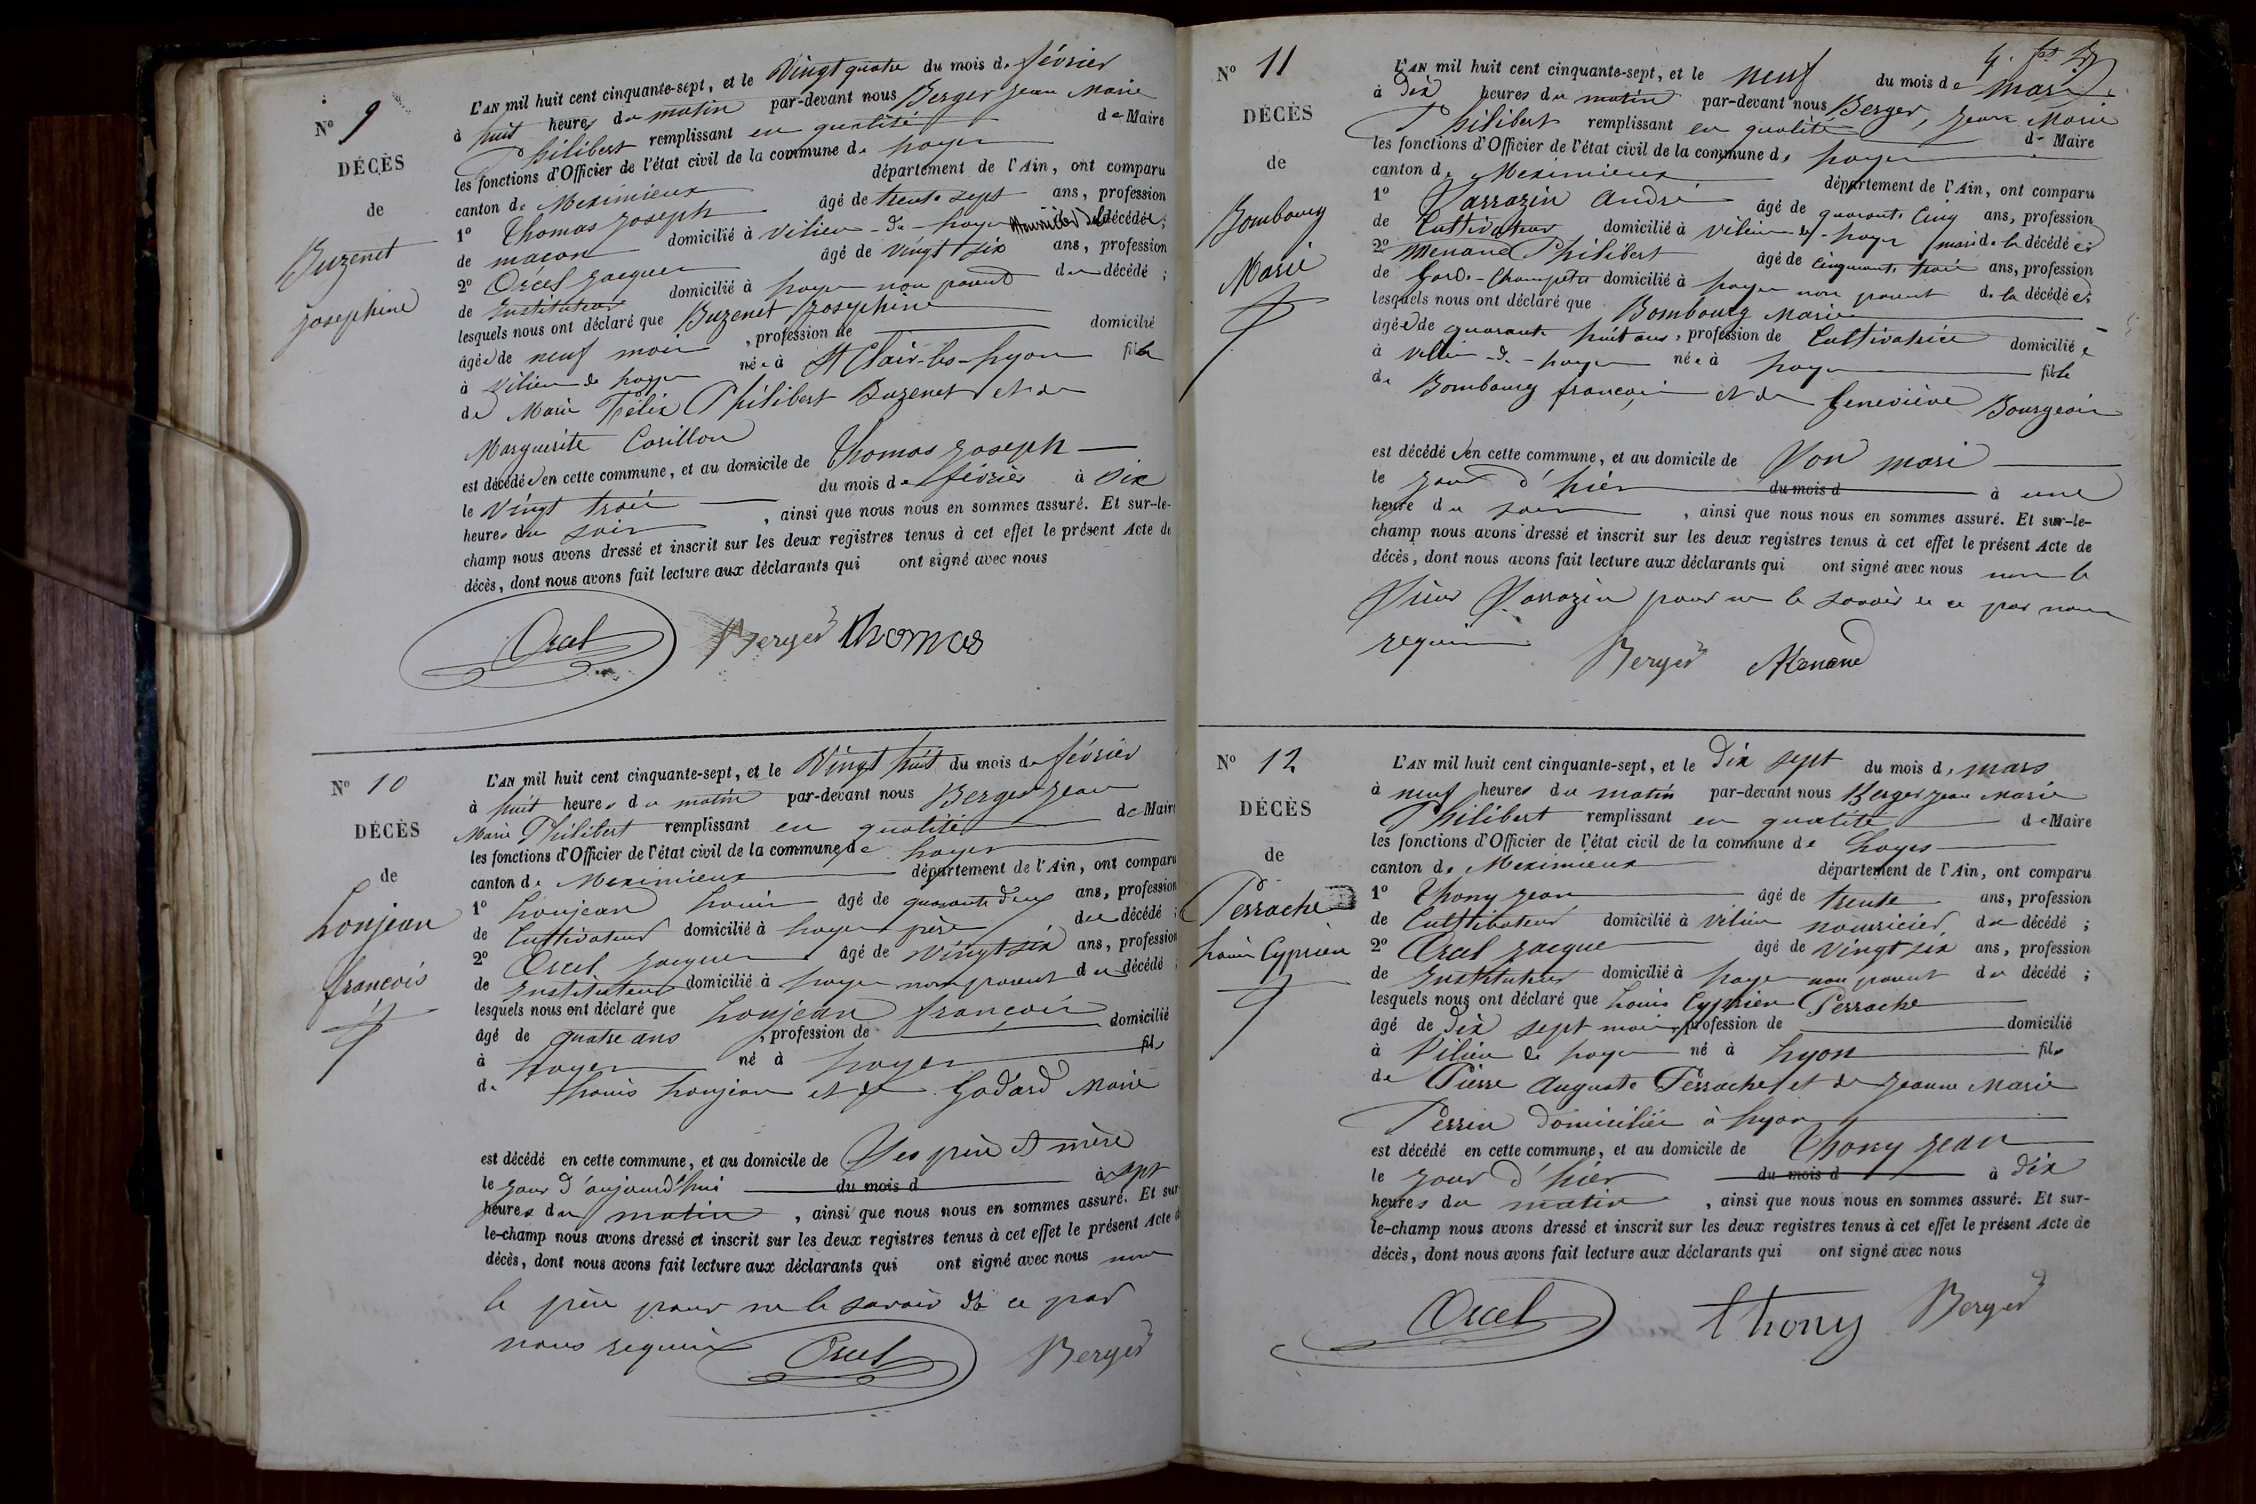 N° 9
DÉCÈS
de
Buzenet
Josephine
L'AN mil huit cent cinquante-sept, et le Vingt quatre du mois de février
à huit heures du matin par-devant nous Berger Jean Marie
Philibert remplissant en qualité de Maire
les fonctions d'Officier de l'état civil de la commune de Loyes
canton de Meximieux département de l'Ain, ont comparu
1° Thomas Joseph âgé de trente sept ans, profession
de maçon domicilié à Vilieu - de - Loyes décédée ;
2° Orcel Jacques âgé de Vingt six ans, profession
de Instituteur domicilié à Loyes non parent du décédé ;
lesquels nous ont déclaré que Buzenet Josephine
âgée de neuf mois , profession de domicilié
à Vilieu de Loyes née à St Clair-les-Lyon fille
de Marie Félix Philibert Buzenet et de
Marguerite Carillon
est décédée en cette commune, et au domicile de Thomas Joseph
le Vingt trois du mois de février à Six
heures du soir , ainsi que nous nous en sommes assuré. Et sur-le-
champ nous avons dressé et inscrit sur les deux registres tenus à cet effet le présent Acte de
décès, dont nous avons fait lecture aux déclarants qui ont signé avec nous
Orcel Berger Thomas
N° 10
DÉCÈS
de
Lonjean
françois
L'AN mil huit cent cinquante-sept, et le Vingt huit du mois de février
à huit heures du matin par-devant nous Berger Jean
Marie Philibert remplissant en qualité de Maire
les fonctions d'Officier de l'état civil de la commune de Loyes
canton de Meximieux département de l'Ain, ont comparu
1° Lonjean Louis âgé de quarante deux ans, profession
de Cultivateur domicilié à Loyes père du décédé ;
2° Orcel Jacques âgé de Vingt six ans, profession
de Instituteur domicilié à Loyes non parent du décédé ;
lesquels nous ont déclaré que Lonjean françois
âgé de quatre ans , profession de domicilié
à Loyes né à Loyes fils
de Louis Lonjean et de Godard Marie
est décédé en cette commune, et au domicile de Ses père et mère
le jour d'aujourd'hui du mois d à sept
heures du matin , ainsi que nous nous en sommes assuré. Et sur
le-champ nous avons dressé et inscrit sur les deux registres tenus à cet effet le présent Acte de
décès, dont nous avons fait lecture aux déclarants qui ont signé avec nous non
le père pour ne le savoir de ce par
nous requis
Orcel Berger
N° 11
DÉCÈS
de
Bombourg
Marie
L'AN mil huit cent cinquante-sept, et le neuf du mois de Mars
à Dix heures du matin par-devant nous Berger, Jean Marie
Philibert remplissant en qualité de Maire
les fonctions d'Officier de l'état civil de la commune de Loyes
canton de Meximieux département de l'Ain, ont comparu
1° Sarrazin André âgé de quarante Cinq ans, profession
de Cultivateur domicilié à Vilieu de - Loyes mari de la décédée ;
2° Menand Philibert âgé de Cinquante trois ans, profession
de Garde-Champêtre domicilié à Loyes non parent de la décédée ;
lesquels nous ont déclaré que Bombourg Marie
âgée de quarante huit ans , profession de Cultivatrice domiciliée
à Vilieu - de - Loyes née à Loyes fille
de Bombourg françois et de Geneviève Bourgeois
est décédée en cette commune, et au domicile de Son mari
le jour d'hier du mois d à une
heure du soir , ainsi que nous nous en sommes assuré. Et sur-le-
champ nous avons dressé et inscrit sur les deux registres tenus à cet effet le présent Acte de
décès, dont nous avons fait lecture aux déclarants qui ont signé avec nous non le
Sieur Sarrazin pour ne le savoir de ce par nous
requis
Berger Menand
N° 12
DÉCÈS
de
Perrache
Louis Cyprien
L'AN mil huit cent cinquante-sept, et le Dix sept du mois de mars
à neuf heures du matin par-devant nous Berger Jean Marie
Philibert remplissant en qualité de Maire
les fonctions d'Officier de l'état civil de la commune de Loyes
canton de Meximieux département de l'Ain, ont comparu
1° Thony Jean âgé de trente ans, profession
de Cultivateur domicilié à Vilieu nourricier du décédé ;
2° Orcel Jacque âgé de Vingt six ans, profession
de Instituteur domicilié à Loyes non parent du décédé ;
lesquels nous ont déclaré que Louis Cyprien Perrache
âgé de Dix sept mois , profession de domicilié
à Vilieu de Loyes né à Lyon fils
de Pierre Auguste Perrache et de Jeanne Marie
Perrin Domiciliée à Lyon
est décédé en cette commune, et au domicile de Thony Jean
le jour d'hier du mois d à dix
heures du matin , ainsi que nous nous en sommes assuré. Et sur-
le-champ nous avons dressé et inscrit sur les deux registres tenus à cet effet le présent Acte de
décès, dont nous avons fait lecture aux déclarants qui ont signé avec nous
Orcel Thony Berger